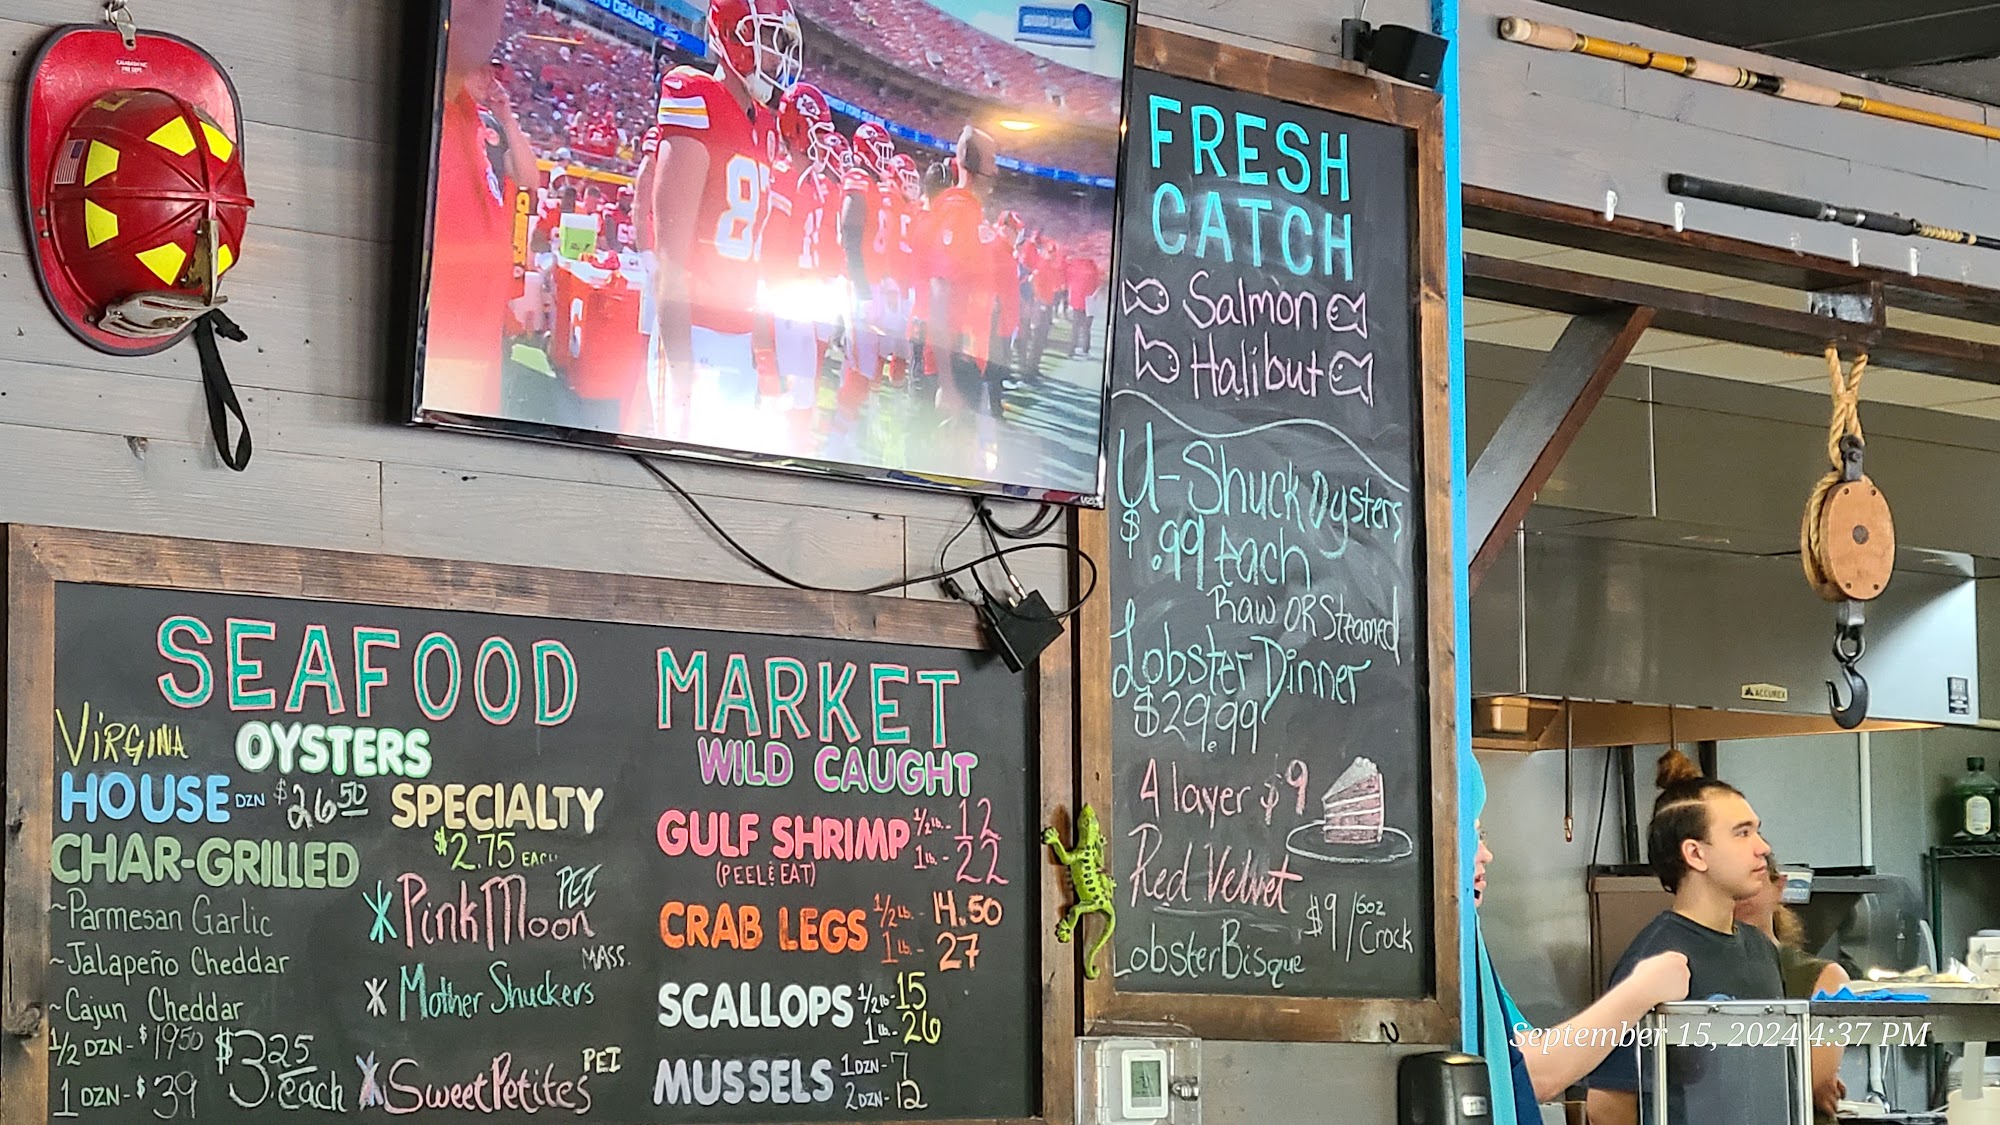 CALABASH NC
FIRE DEPT
BUD LIGHT
8
6
FRESH
CATCH
Salmon
Halibut
U-Shuck Oysters
$.99 Each
Raw OR Steamed
Lobster Dinner
$29.99
4 layer $9
Red Velvet
$9/6oz
Crock
Lobster Bisque
SEAFOOD MARKET
VIRGINIA OYSTERS
HOUSE DZN $26.50
CHAR-GRILLED
~Parmesan Garlic
~Jalapeño Cheddar
~Cajun Cheddar
1/2 DZN- $19.50
1 DZN- $39
$3.25
each
SPECIALTY
$2.75 EACH
PEI
Pink Moon
MASS.
Mother Shuckers
PEI
Sweet Petites
WILD CAUGHT
GULF SHRIMP 1/2 lb.- 12
(PEEL & EAT) 1 lb. - 22
CRAB LEGS 1/2 lb. - 14.50
1 lb. - 27
SCALLOPS 1/2 lb.-15
1 lb.- 26
MUSSELS 1 DZN-7
2 DZN-12
ACCUREX
September 15, 2024 4:37 PM